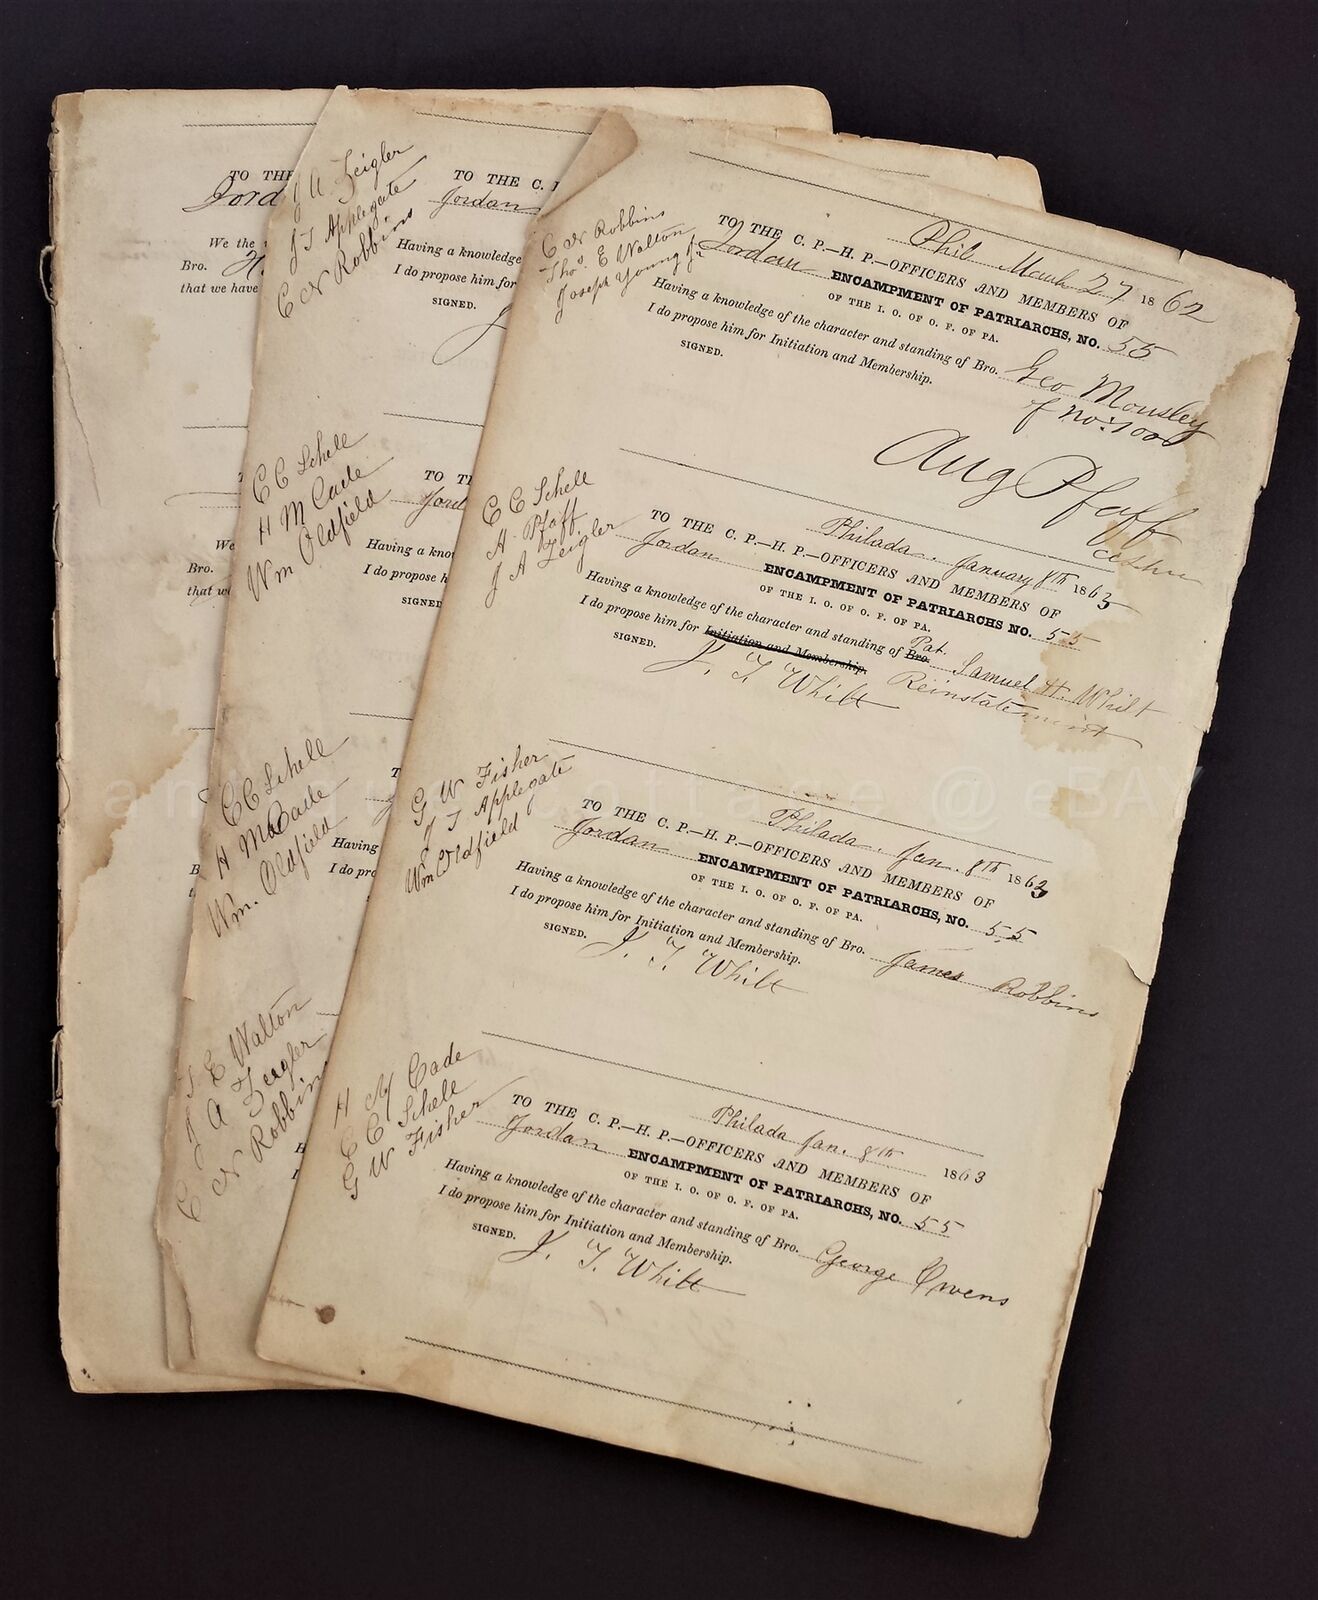 TO THE
Jord
We the
Bro. H
that we have
We
Bro.
that we
J A Zeigler
J T Applegate
C N Robbins
TO THE C. P
Jordan
Having a knowledge
I do propose him for
SIGNED.
C C Schell
H M Cade
Wm Oldfield
TO T
Jord
Having a know
I do propose h
SIGNED
C C Schell
H M Cade
Wm. Oldfield
Having
I do pro
T E Walton
J A Zeigler
C N Robbins
C N Robbins
Thos. E Walton
Joseph Young Jr
Phil March 27 1862
TO THE C. P.—H. P.—OFFICERS AND MEMBERS OF
Jordan ENCAMPMENT OF PATRIARCHS, NO. 55
OF THE I. O. OF O. F. OF PA.
Having a knowledge of the character and standing of Bro. Geo Mousley
I do propose him for Initiation and Membership. of No. 100
SIGNED.
Aug Pfaff
C C Schell
A Pfaff
J A Zeigler
Philada. January 8th 1863
TO THE C. P.—H. P.—OFFICERS AND MEMBERS OF
Jordan ENCAMPMENT OF PATRIARCHS NO. 55
OF THE I. O. OF O. F. OF PA.
Having a knowledge of the character and standing of Bro. Pat. Samuel H. Whilt
I do propose him for Initiation and Membership. Reinstatement
SIGNED. J. T. Whilt
G W Fisher
J T Applegate
Wm Oldfield
Philada. Jan. 8th 1863
TO THE C. P.—H. P.—OFFICERS AND MEMBERS OF
Jordan ENCAMPMENT OF PATRIARCHS, NO. 55
OF THE I. O. OF O. F. OF PA.
Having a knowledge of the character and standing of Bro. James Robbins
I do propose him for Initiation and Membership.
SIGNED. J. T. Whilt
H M Cade
C C Schell
G W Fisher
Philada Jan. 8th 1863
TO THE C. P.—H. P.—OFFICERS AND MEMBERS OF
Jordan ENCAMPMENT OF PATRIARCHS, NO. 55
OF THE I. O. OF O. F. OF PA.
Having a knowledge of the character and standing of Bro. George Owens
I do propose him for Initiation and Membership.
SIGNED. J. T. Whilt
@ eBAY